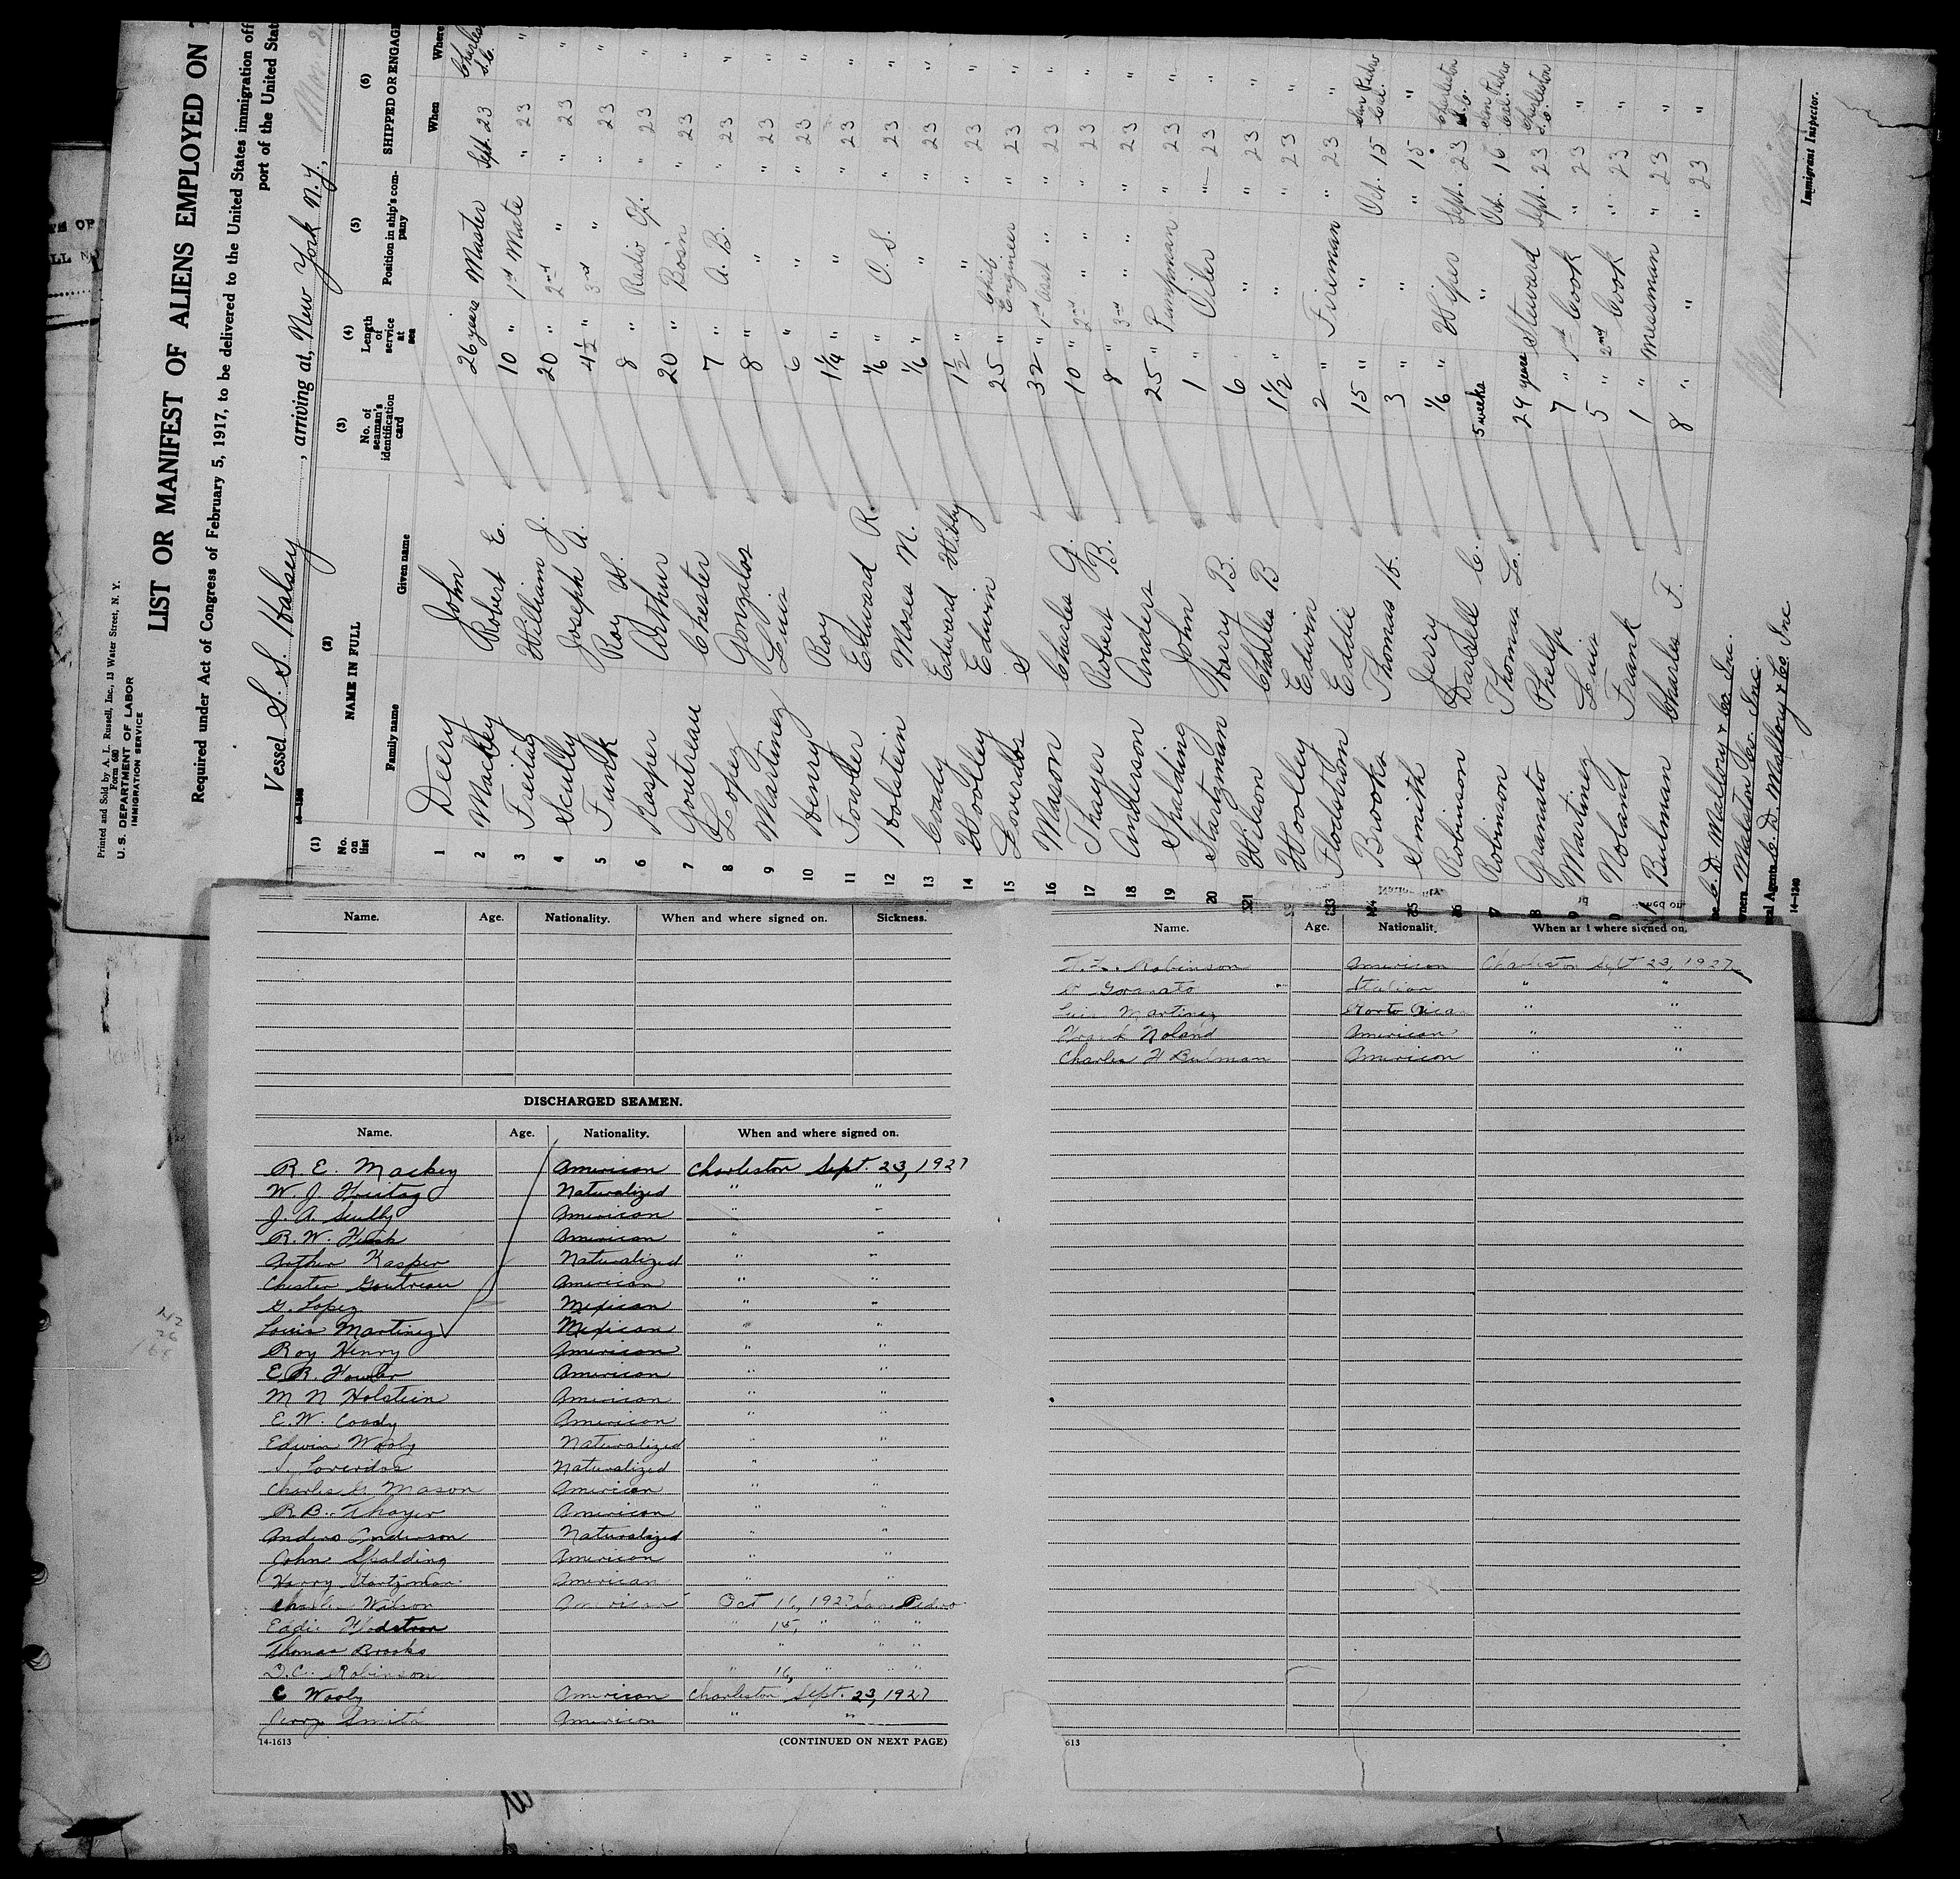 Printed and Sold by A. L. Russell, Inc., 13 Water Street, N. Y.
Form 680
U. S. DEPARTMENT OF LABOR
IMMIGRATION SERVICE
LIST OR MANIFEST OF ALIENS EMPLOYED ON
Required under Act of Congress of February 5, 1917, to be delivered to the United States immigration off
port of the United Stat
Vessel S. S. Halsey, arriving at, New York N.Y.,
(1) (2) (3) (4) (5) (6)
No. on list NAME IN FULL No. of seaman's identification card Length of service at sea Position in ship's company SHIPPED OR ENGAGE
Family name Given name When Where
1 Deery John 26 years Master Sept. 23 Charles S.C.
2 Mackey Robert E. 10 " 1st Mate " 23 "
3 Freitag William J. 20 " 2nd " " 23 "
4 Scully Joseph A. 4½ " 3rd " " 23 "
5 Funk Roy W. 8 " Radio Op. " 23 "
6 Kasper Arthur 20 " Bos'n " 23 "
7 Goutreau Chester 7 " A. B. " 23 "
8 Lopez Gonzalos 8 " " " 23 "
9 Martinez Luis 6 " " " 23 "
10 Henry Roy 1¼ " " " 23 "
11 Fowler Edward R. 1/6 " O. S. " 23 "
12 Holstein Moses N. 1/6 " " " 23 "
13 Coady Edward Wibby 1½ " " " 23 "
14 Woolley Edwin 25 " Chief Engineer " 23 "
15 Loverdos S 32 " 1st Asst " " 23 "
16 Mason Charles G. 10 " 2nd " " " 23 "
17 Thayer Robert B. 8 " 3rd " " " 23 "
18 Anderson Anders 25 " Pumpman " 23 "
19 Spalding John 1 " Oiler " 23 "
20 Startzman Harry B. 6 " " 23 "
21 Wilson Charles B 1½ " " " 23 "
Woolley Edwin 2 " Fireman " 23 "
Flodstrom Eddie 15 " " Oct. 15 San Pedro Cal.
Brooks Thomas H. 3 " " " 15 "
Smith Jerry 1/6 " Wiper Sept. 23 Charleston S.C.
Robinson Darsell C. 5 weeks " Oct. 16 San Pedro Cal.
Robinson Thomas L. 29 years Steward Sept. 23 Charleston S.C.
Granato Phelip 7 " 1st Cook " 23 "
Martinez Luis 5 " 2nd Cook " 23 "
Noland Frank 1 " Messman " 23 "
Bulman Charles F. 8 " " " 23 "
C. D. Mallory & Co Inc.
Owners Malston Co. Inc.
cal Agents C. D. Mallory & Co Inc
14-1240
Immigrant Inspector.
Name. Age. Nationality. When and where signed on. Sickness.
DISCHARGED SEAMEN.
Name. Age. Nationality. When and where signed on.
R. E. Mackey American Charleston Sept. 23, 1927
W. J. Freitag Naturalized " "
J. A. Scully American " "
R. W. Funk American " "
Arthur Kasper Naturalized " "
Chester Goutreau American " "
G. Lopez Mexican " "
Louis Martinez Mexican " "
Roy Henry American " "
E. R. Fowler American " "
M N Holstein American " "
E. W. Coady American " "
Edwin Wooly Naturalized " "
S. Loverdos Naturalized " "
Charles G. Mason American " "
R. B. Thayer American " "
Anders Anderson Naturalized " "
John Spalding American " "
Harry Startzman American " "
Charles Wilson American Oct 16, 1927 San Pedro
Eddie Flodstrom " 15, " " "
Thomas Brooks " " "
D. C. Robinson " 16, " " "
E Wooly American Charleston Sept. 23, 1927
Jerry Smith American " "
14-1613 (CONTINUED ON NEXT PAGE)
Name. Age. Nationalit. When ar l where signed on.
T. L. Robinson American Charleston Sept 23, 1927
P Granato Italian " "
Luis Martinez Porto Rican " "
Frank Noland American " "
Charles F Bulman American " "
613